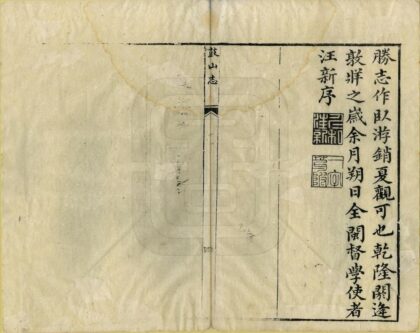 勝志作臥游銷夏觀可也乾隆閼逢
敦牂之歲余月朔日全閩督學使者
汪新序
鼓山志